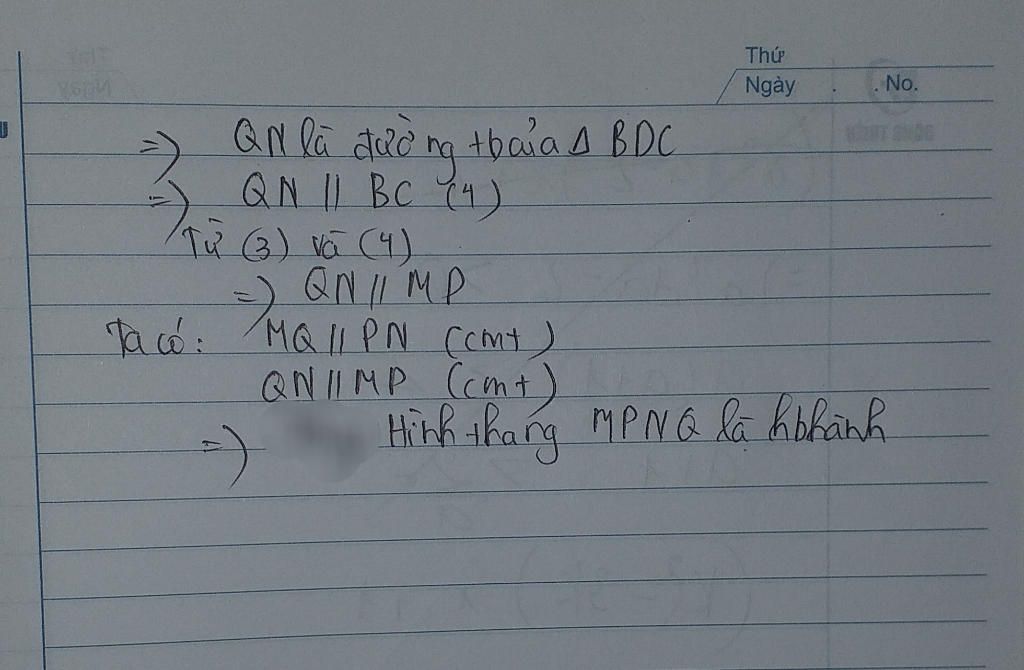 Thứ
Ngày . . No.
=> QN là đường tbủa Δ BDC
=> QN // BC (4)
Từ (3) và (4)
=> QN // MP
Ta có: MQ // PN (cmt)
QN // MP (cmt)
=> Hình thang MPNQ là hbhành